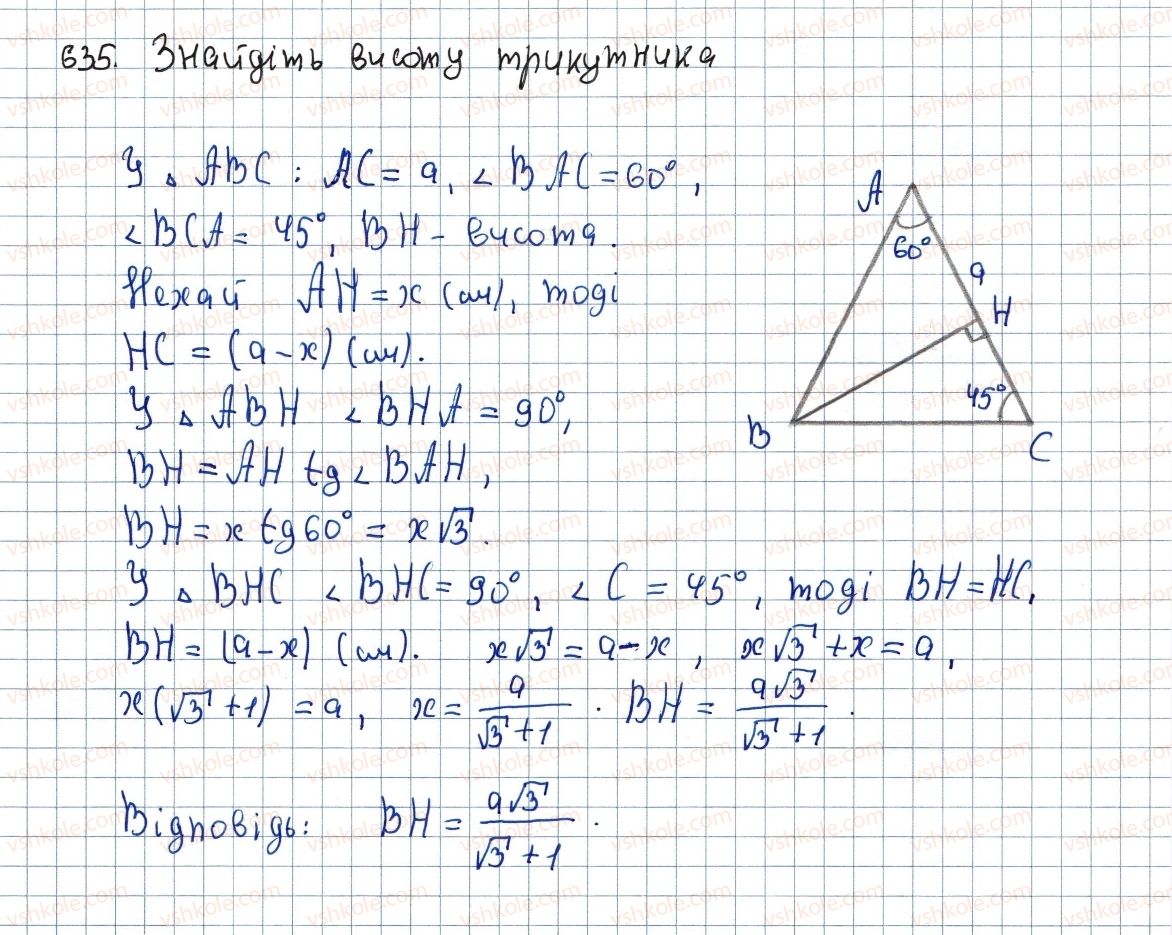 635. Знайдіть висоту трикутника
У △ ABC : AC = a, ∠ BAC = 60°,
∠ BCA = 45°, BH – висота.
Нехай AH = x (см), тоді
HC = (a – x) (см).
У △ ABH ∠ BHA = 90°,
BH = AH tg ∠ BAH,
BH = x tg 60° = x√3.
У △ BHC ∠ BHC = 90°, ∠ C = 45°, тоді BH = HC.
BH = (a – x) (см). x√3 = a – x, x√3 + x = a,
x(√3 + 1) = a, x = a/(√3 + 1). BH = a√3/(√3 + 1).
Відповідь: BH = a√3/(√3 + 1).
A
60°
a
H
45°
B
C
vshkole.com